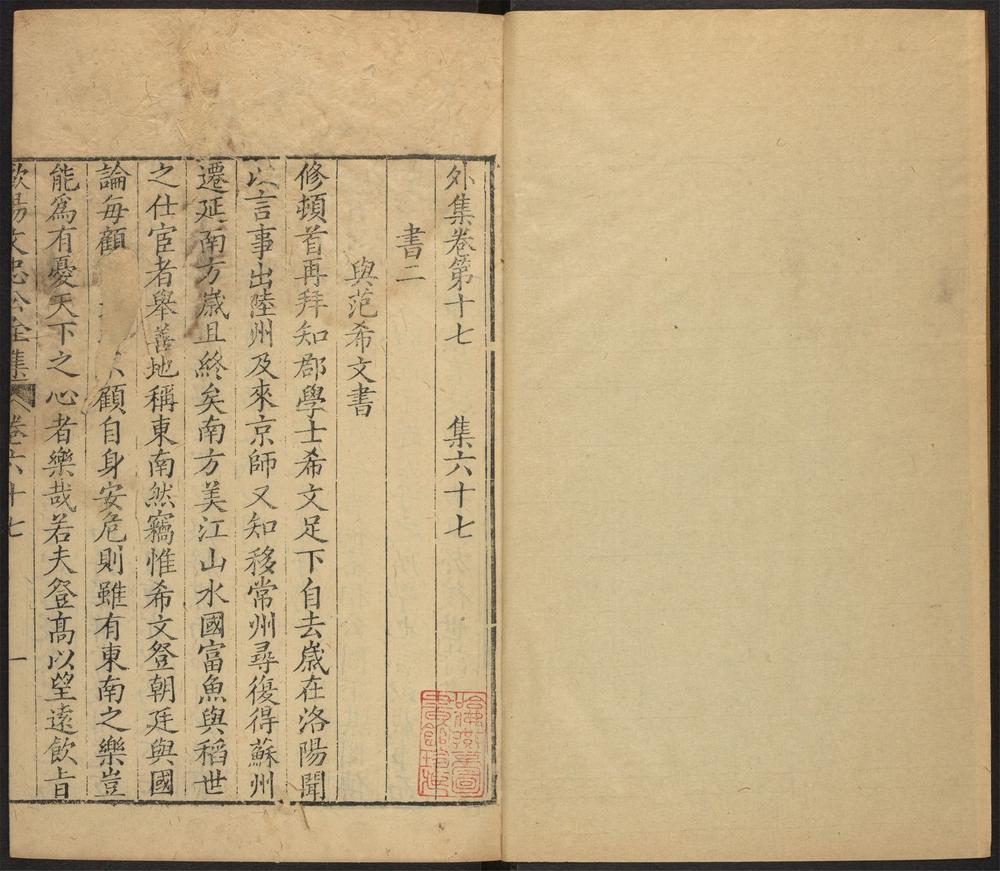 外集卷第十七　集六十七
書二
與范希文書
修頓首再拜知郡學士希文足下自去歲在洛陽聞
以言事出陸州及來京師又知移常州尋復得蘇州
遷延南方歲且終矣南方美江山水國富魚與稻世
之仕宦者舉善地稱東南然竊惟希文登朝廷與國
論每顧 顧自身安危則雖有東南之樂豈
能爲有憂天下之心者樂哉若夫登髙以望遠飲旨
歐陽文忠公全集 卷六十七 一